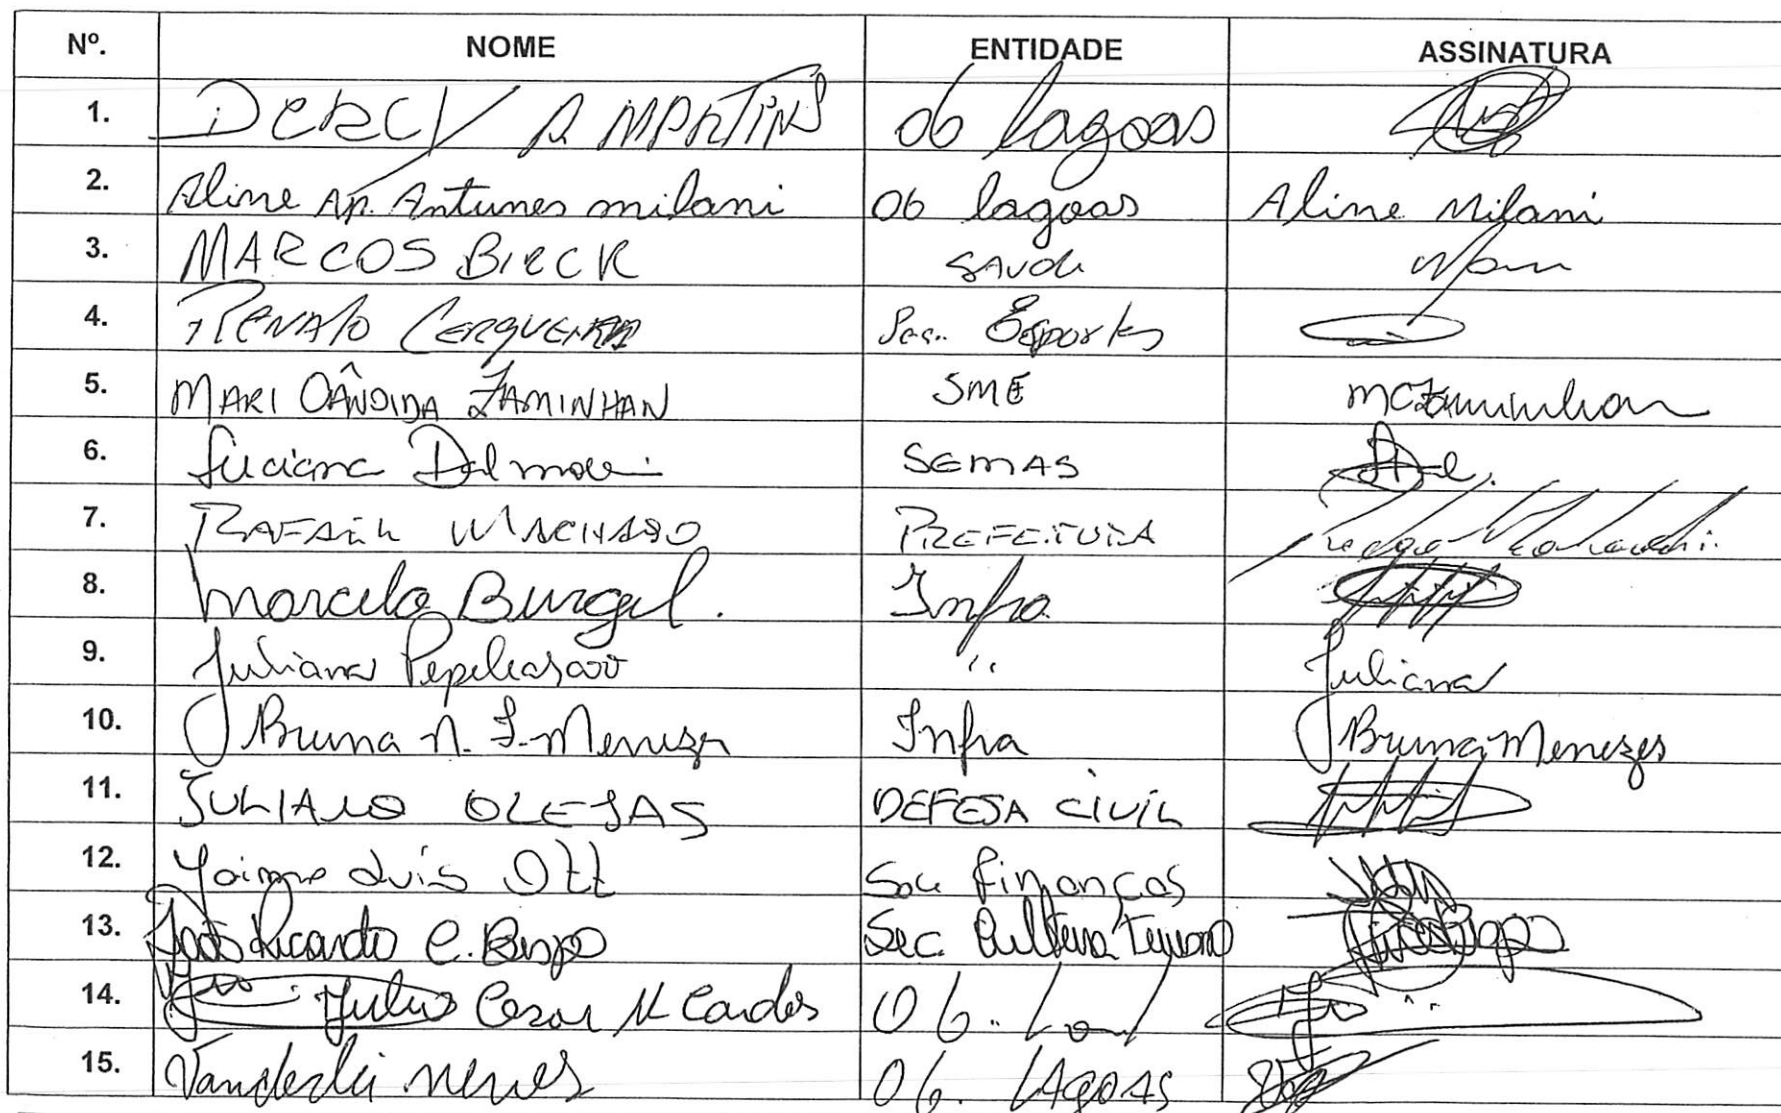 Nº. NOME ENTIDADE ASSINATURA
1. DERCY A MARTINS 06 lagoas
2. Aline Ap. Antunes milani 06 lagoas Aline Milani
3. MARCOS BIECK SAUDE
4. RENATO CERQUEIRA Sec. Esportes
5. MARI CÂNDIDA ZAMINHAN SME MCZaminhan
6. Luciana SEMAS
7. RAFAEL MACHADO PREFEITURA
8. Marcelo Infra
9. Juliana " Juliana
10. Bruna N. F. Menezes Infra Bruna Menezes
11. JULIANO OLEJAS DEFESA CIVIL
12. Jaime Luis Ott Sec Finanças
13. João Ricardo C. Bispo Sec. Cultura
14. Julio Cezar 06.
15. Vanderlei neves 06. LAgoAS